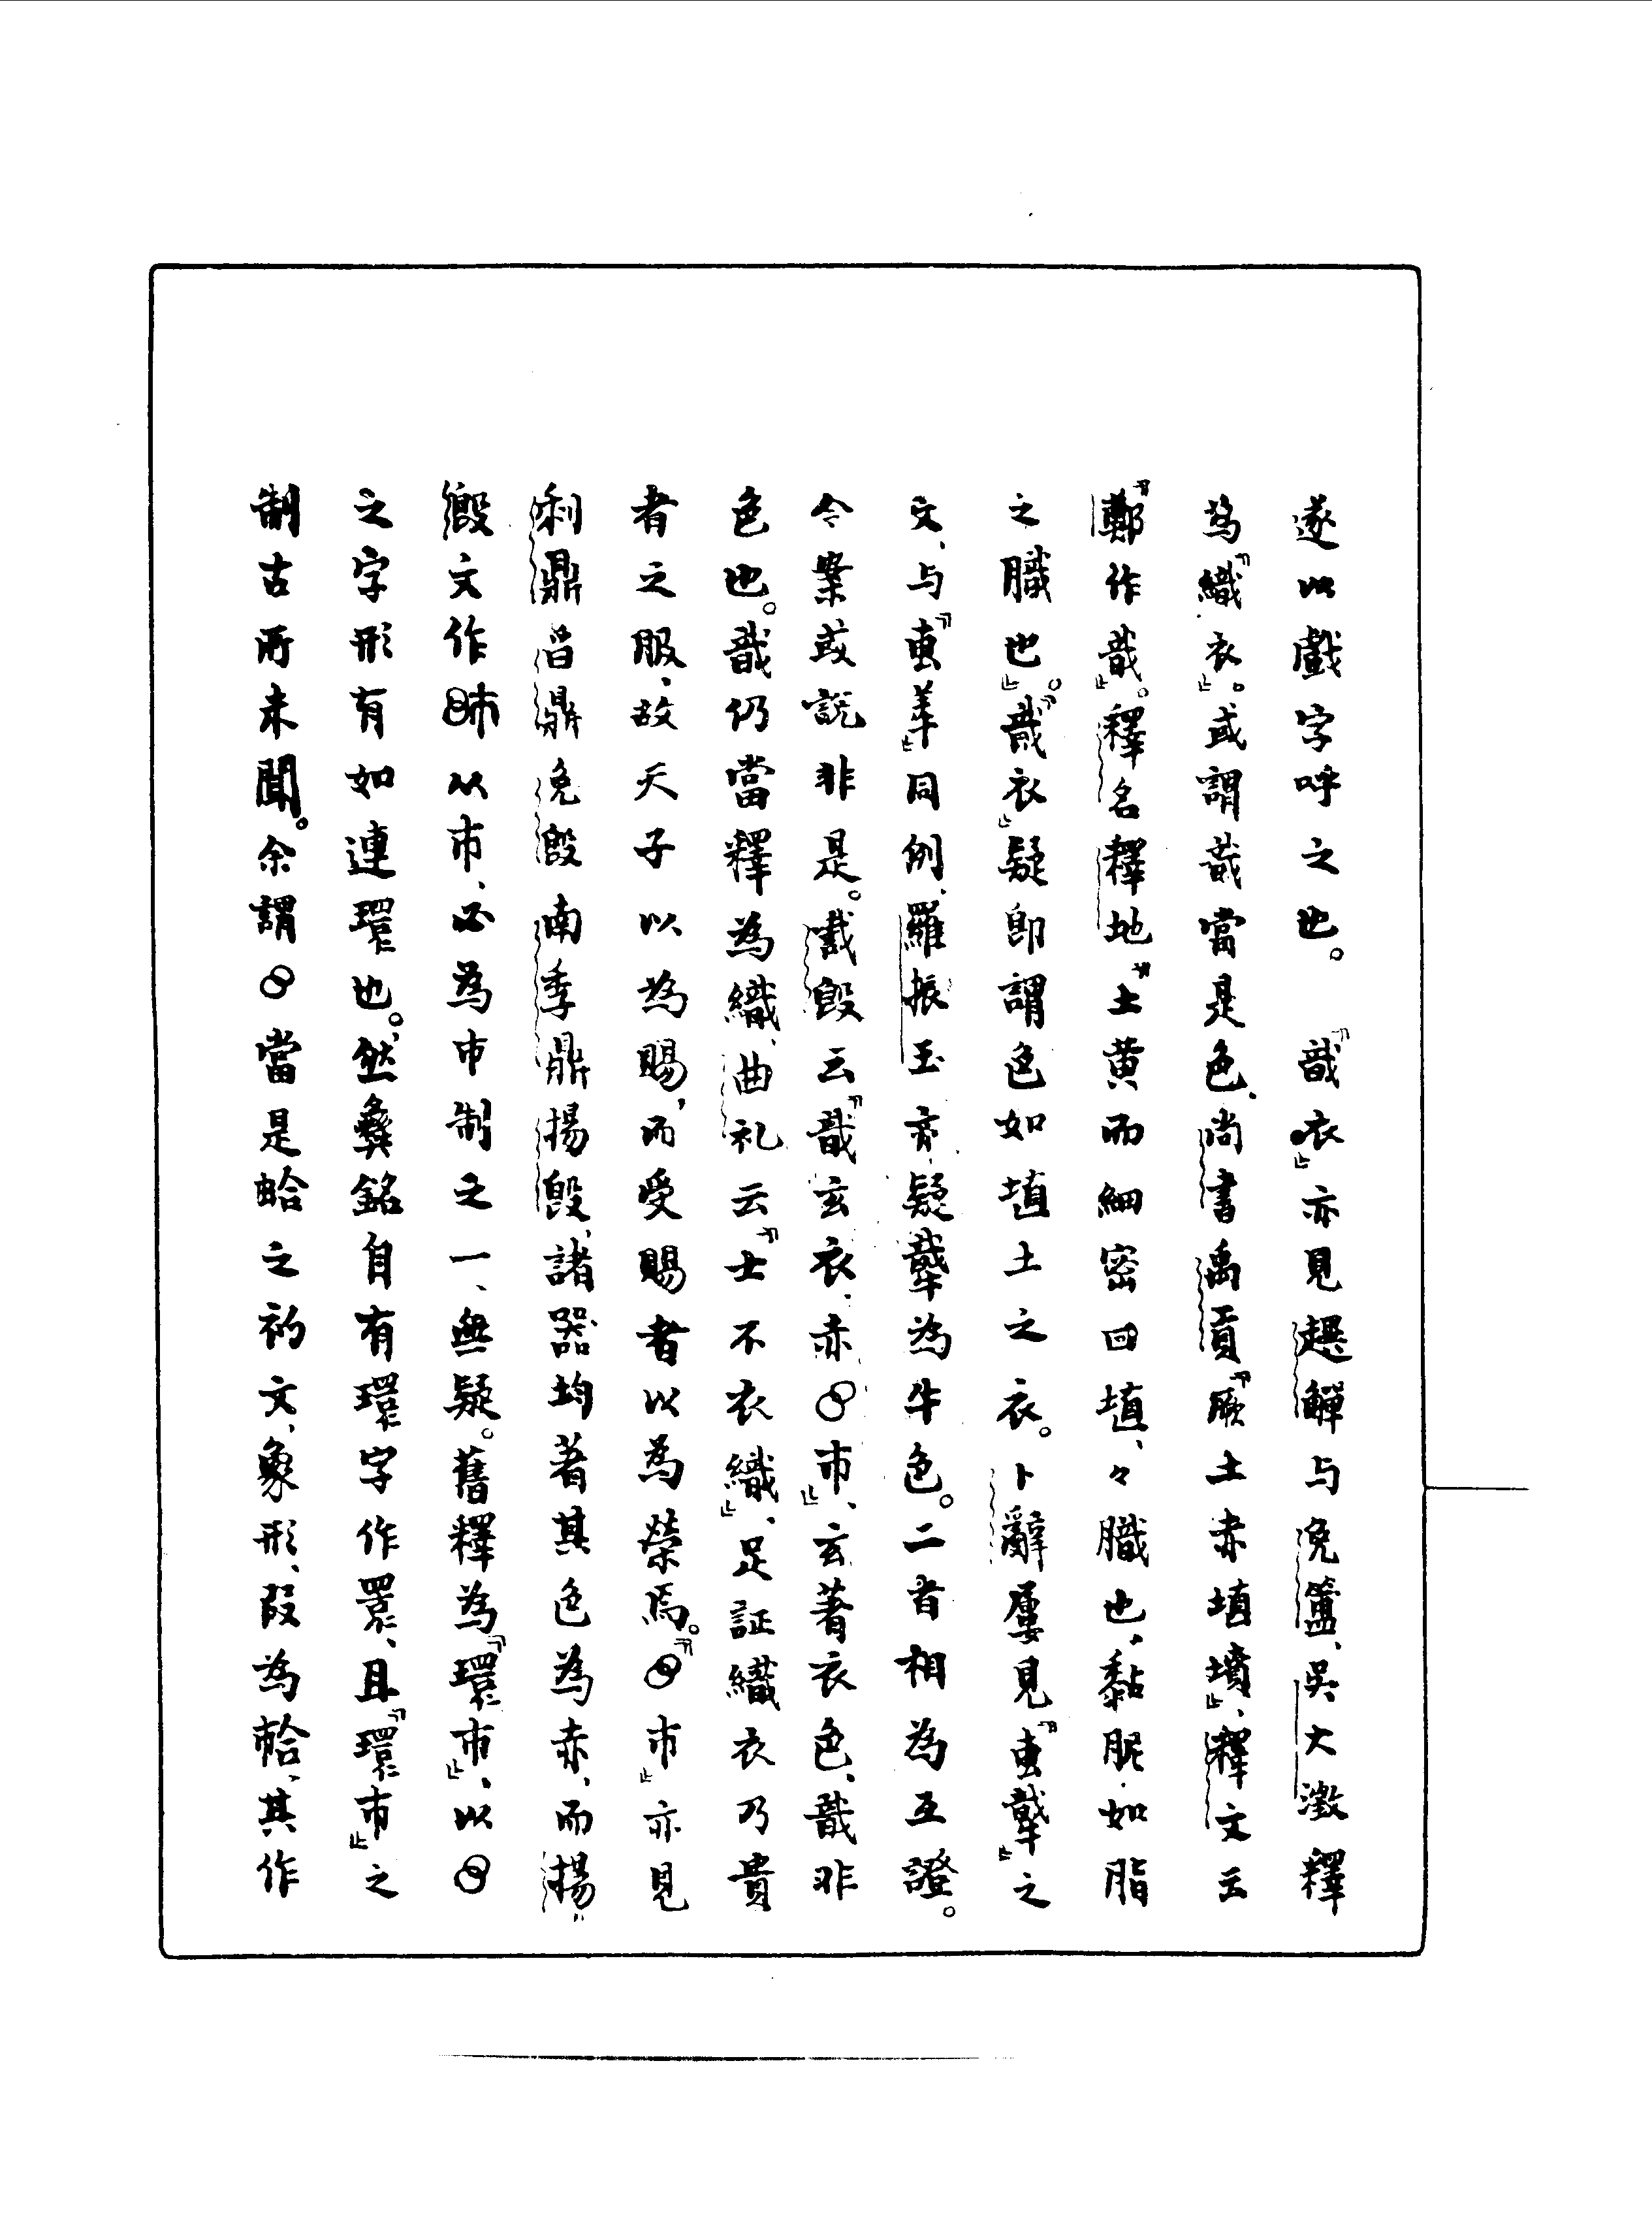 遂以戲字呼之也。「戠衣」亦見趩觶与免簠、吳大澂釋
為「織衣」。或謂戠當是色、尚書禹貢「厥土赤埴墳」、釋文云
「鄭作戠」。釋名釋地「土黃而細密曰埴、々膱也、黏胒如脂
之膱也」。「戠衣」疑即謂色如埴土之衣。卜辭屢見「叀」之
文、与「叀」同例、羅振玉亦疑為牛色。二者相為互證。
今案或說非是。㦰𣪘云「戠玄衣、赤市」、玄著衣色、戠非
色也。戠仍當釋為織、曲礼云「士不衣織」、足証織衣乃貴
者之服、故天子以為賜、而受賜者以為榮焉。「市」亦見
利鼎舀鼎免𣪘南季鼎揚𣪘、諸器均著其色為赤、而揚
𣪘文作从市、必為市制之一、無疑。舊釋為「環市」、以
之字形有如連環也。然彝銘自有環字作睘、且「環市」之
制古所未聞。余謂當是蛤之初文、象形、叚為韐、其作